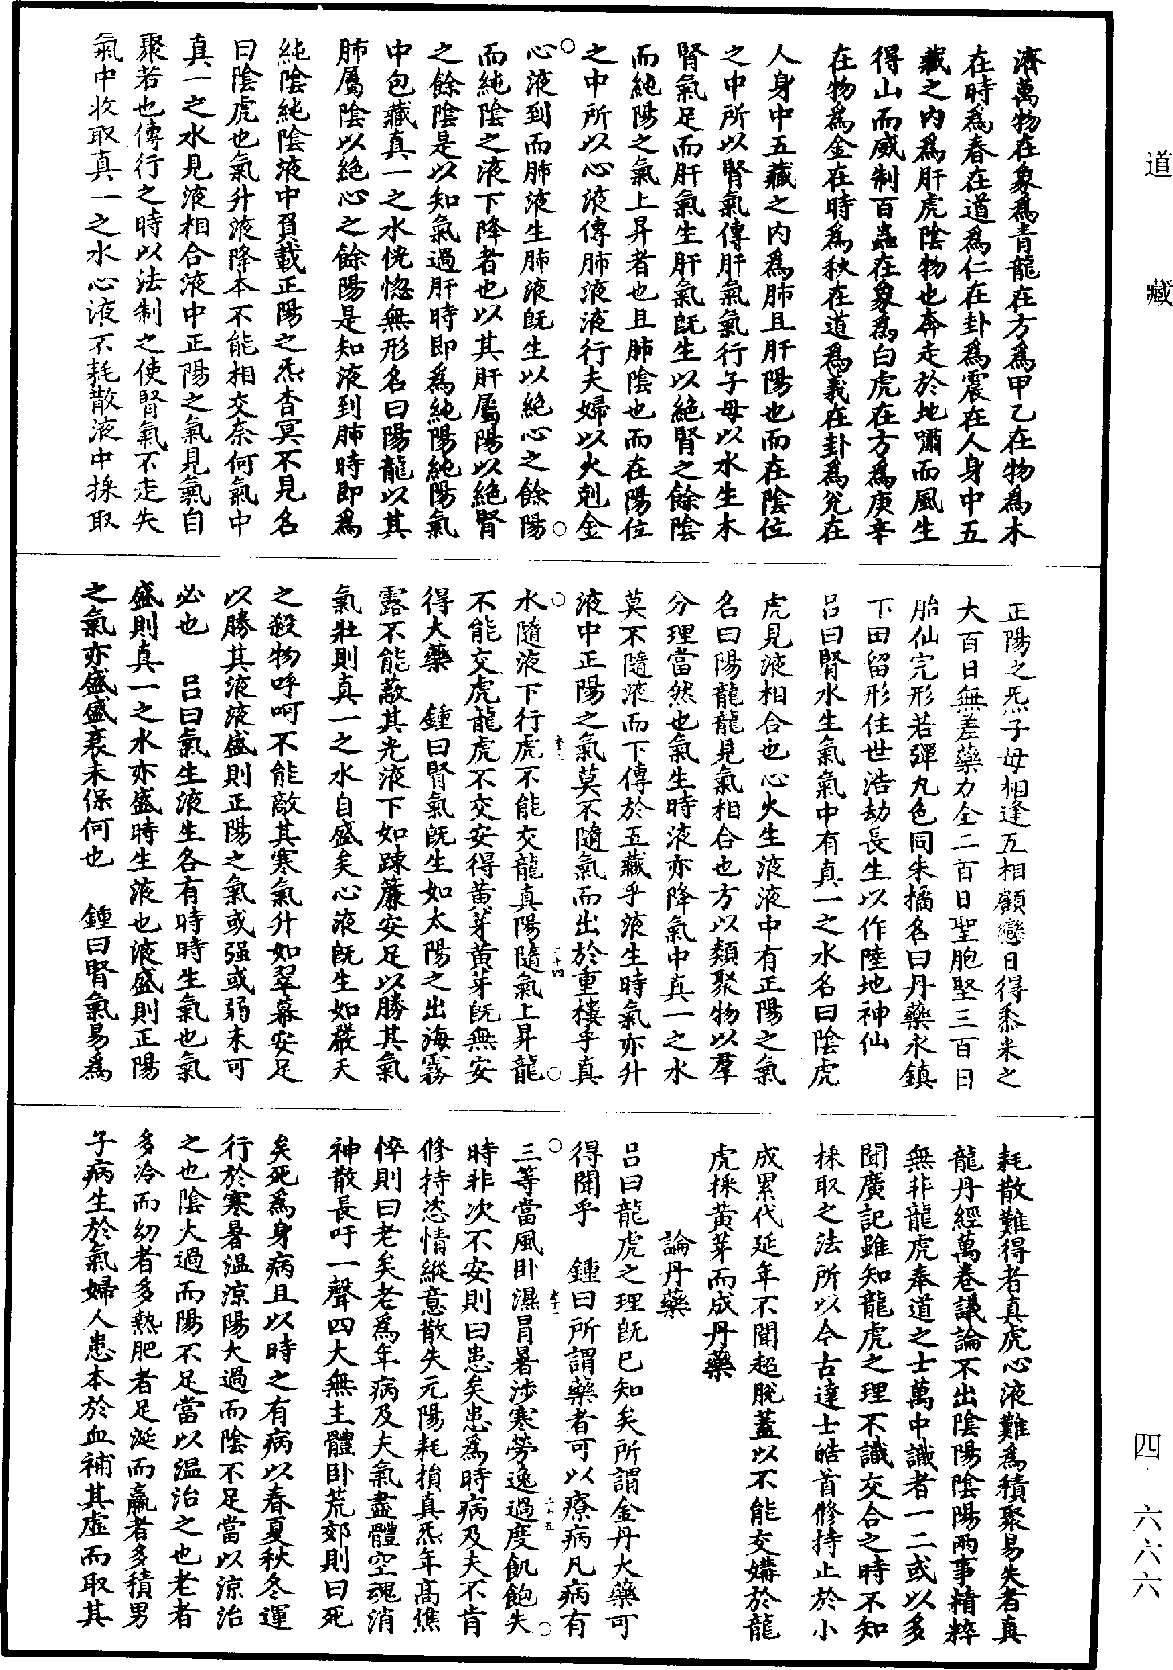 道藏
四·六六六
濟萬物在象爲青龍在方爲甲乙在物爲木
在時爲春在道爲仁在卦爲震在人身中五
藏之内爲肝虎陰物也奔走於地嘯而風生
得山而威制百蟲在象爲白虎在方爲庚辛
在物爲金在時爲秋在道爲義在卦爲兊在
人身中五藏之内爲肺且肝陽也而在陰位
之中所以腎氣傳肝氣氣行子母以水生木
腎氣足而肝氣生肝氣既生以絕腎之餘陰
而純陽之氣上昇者也且肺陰也而在陽位
之中所以心液傳肺液液行夫婦以火剋金
心液到而肺液生肺液既生以絕心之餘陽
而純陰之液下降者也以其肝屬陽以絕腎
之餘陰是以知氣過肝時即爲純陽純陽氣
中包藏真一之水恍惚無形名曰陽龍以其
肺屬陰以絕心之餘陽是知液到肺時即爲
純陰純陰液中負載正陽之炁杳冥不見名
曰陰虎也氣升液降本不能相交奈何氣中
真一之水見液相合液中正陽之氣見氣自
聚若也傳行之時以法制之使腎氣不走失
氣中收取真一之水心液不耗散液中採取
正陽之炁子母相逢互相顧戀日得黍米之
大百日無差藥力全二百日聖胞堅三百日
胎仙完形若彈丸色同朱橘名曰丹藥永鎮
下田留形住世浩劫長生以作陸地神仙
吕曰腎水生氣氣中有真一之水名曰陰虎
虎見液相合也心火生液液中有正陽之氣
名曰陽龍龍見氣相合也方以類聚物以羣
分理當然也氣生時液亦降氣中真一之水
莫不隨液而下傳於五藏乎液生時氣亦升
液中正陽之氣莫不隨氣而出於重樓乎真
水隨液下行虎不能交龍真陽隨氣上昇龍
不能交虎龍虎不交安得黄芽黄芽既無安
得大藥　鍾曰腎氣既生如太陽之出海霧
露不能蔽其光液下如踈簾安足以勝其氣
氣壯則真一之水自盛矣心液既生如嚴天
之殺物呼呵不能敵其寒氣升如翠幕安足
以勝其液液盛則正陽之氣或强或弱未可
必也　吕曰氣生液生各有時時生氣也氣
盛則真一之水亦盛時生液也液盛則正陽
之氣亦盛盛衰未保何也　鍾曰腎氣易爲
耗散難得者真虎心液難爲積聚易失者真
龍丹經萬卷議論不出陰陽陰陽兩事精粹
無非龍虎奉道之士萬中識者一二或以多
聞廣記雖知龍虎之理不識交合之時不知
採取之法所以今古達士皓首修持止於小
成累代延年不聞超脱蓋以不能交媾於龍
虎採黄芽而成丹藥
論丹藥
吕曰龍虎之理既已知矣所謂金丹大藥可
得聞乎　鍾曰所謂藥者可以療病凡病有
三等當風卧濕冒暑涉寒勞逸過度飢飽失
時非次不安則曰患矣患爲時病及夫不肯
修持恣情縱意散失元陽耗損真炁年高憔
悴則曰老矣老爲年病及夫氣盡體空魂消
神散長吁一聲四大無主體卧荒郊則曰死
矣死爲身病且以時之有病以春夏秋冬運
行於寒暑温涼陽太過而陰不足當以涼治
之也陰太過而陽不足當以温治之也老者
多冷而幼者多熱肥者足涎而羸者多積男
子病生於氣婦人患本於血補其虛而取其